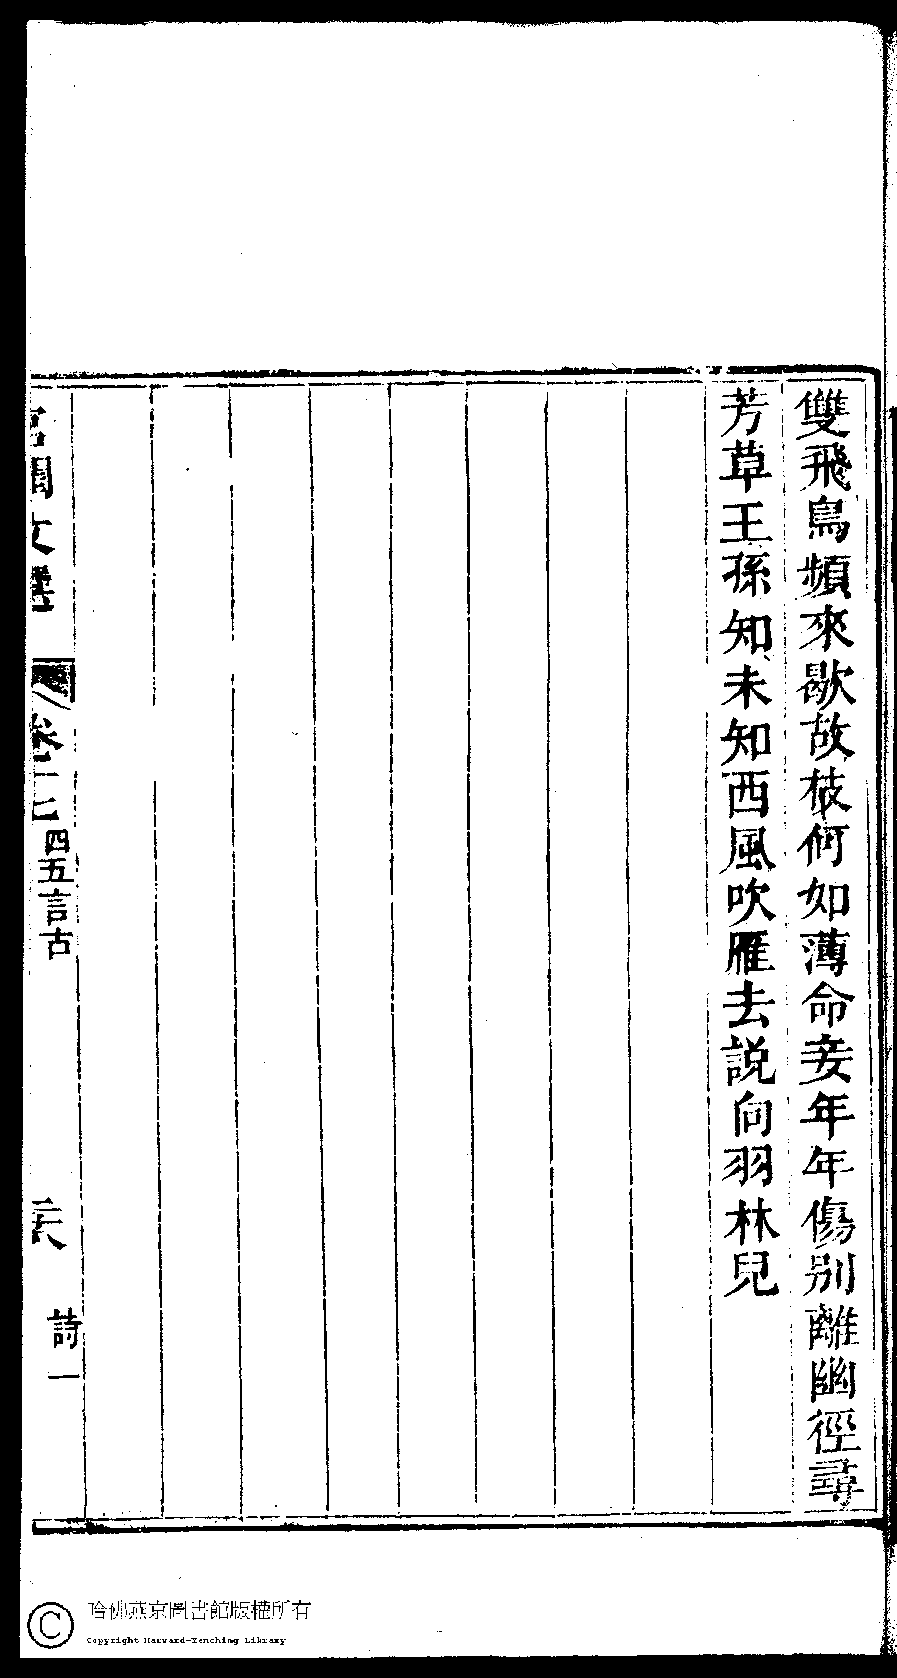 雙飛鳥頻來歇故枝何如薄命妾年年傷別離幽徑尋
芳草王孫知未知西風吹雁去説向羽林兒
宮閨文選
卷十七
四五言古
詩一
哈佛燕京圖書館版權所有
Copyright Harvard-Yenching Library